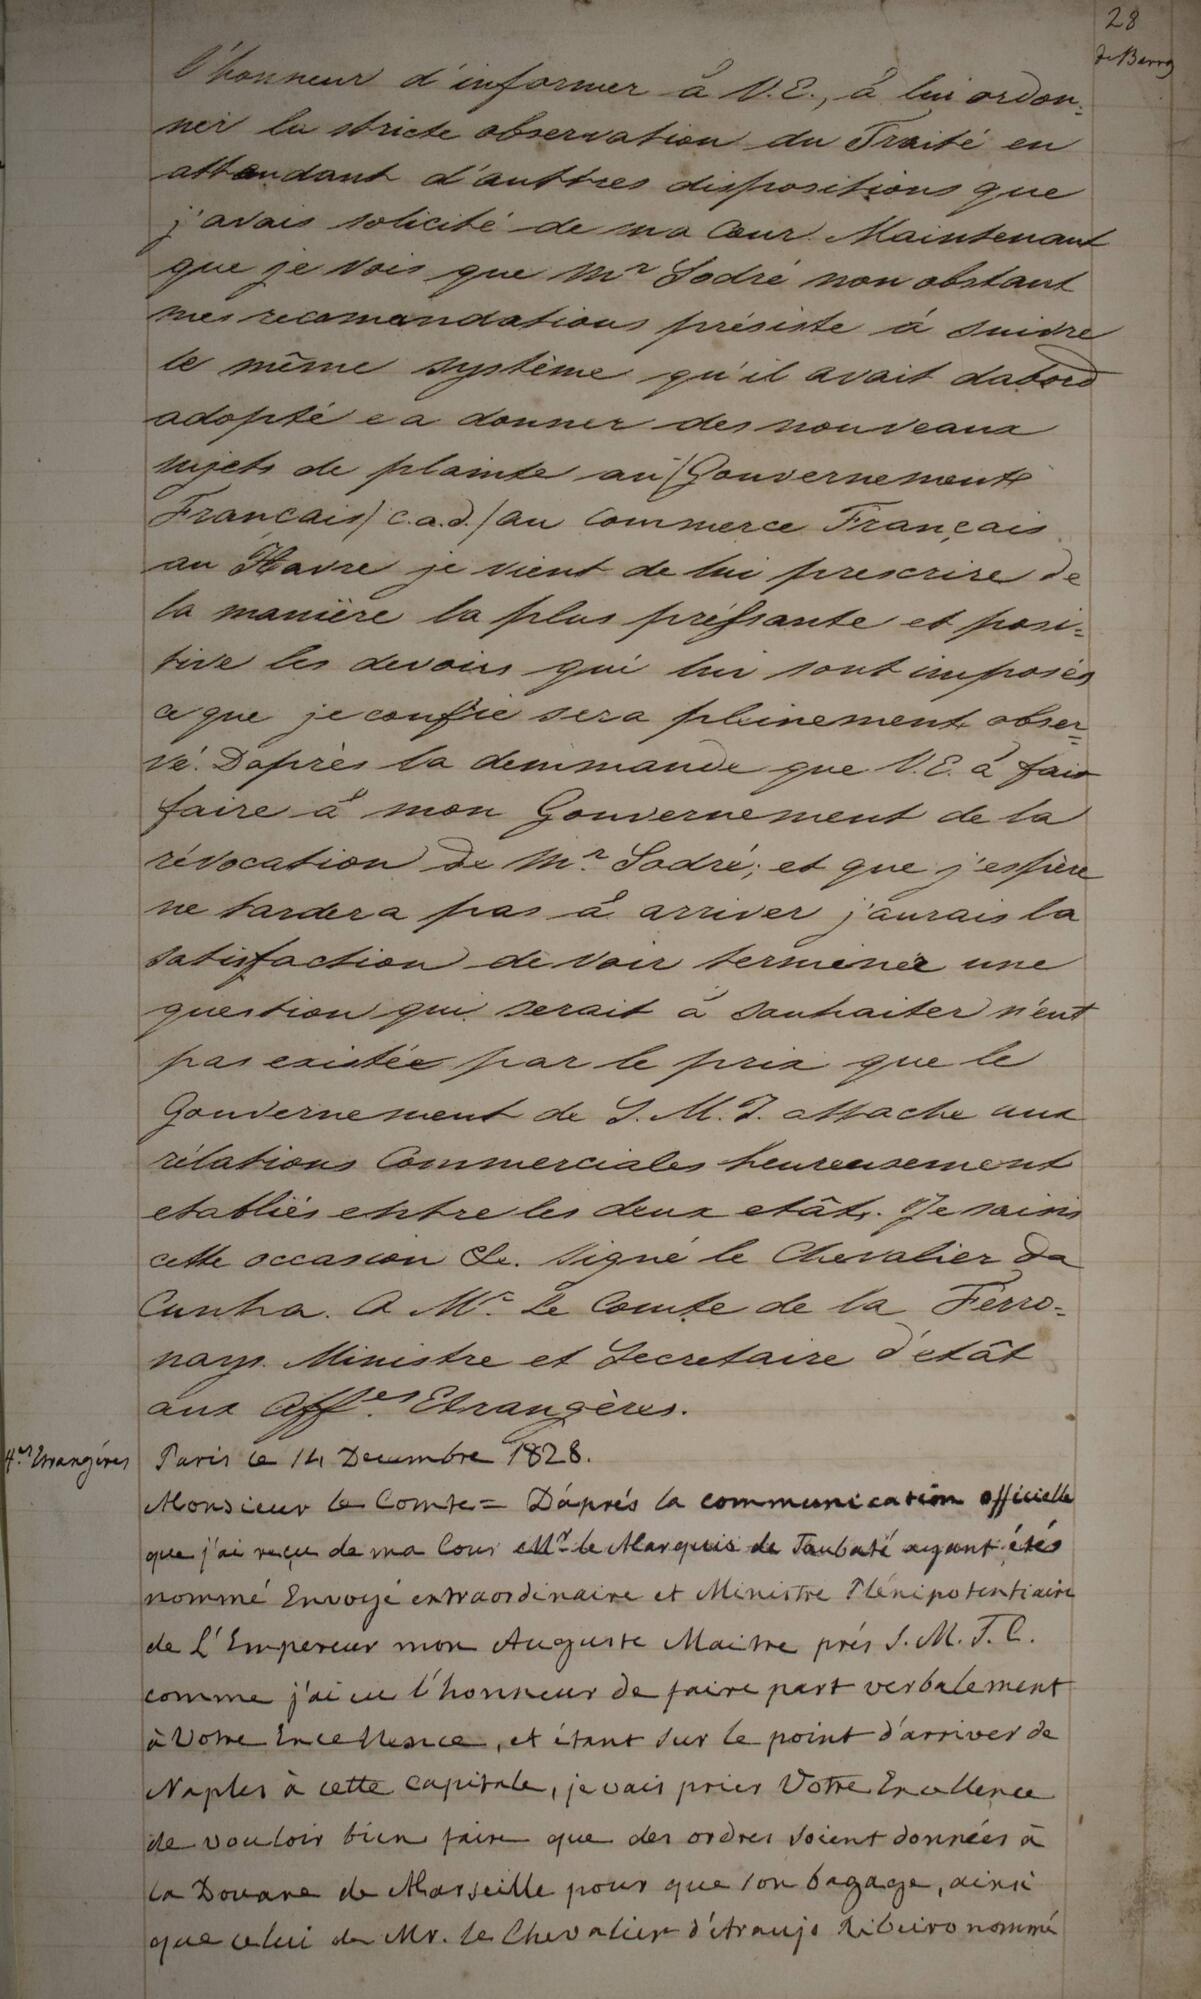 28
de Barros
l'honneur d'informer à V.E., à lui ordon-
ner la stricte observation du Traité en
attendant d'auttres dispositions que
j'avais solicité de ma Cour. Maintenant
que je vois que Mr Sodré non obstant
mes recomandations présiste à suivre
le même système qu'il avait dabord
adopté e a donner des nouveaux
sujets de plainte au/Gouvernement
Français/c.a.d./au Commerce Français
au Havre je vient de lui prescrire de
la manière la plus préssante et posi-
tive les devoirs qui lui sont imposés
ce que je confie sera pleinement obser-
vé. Daprès la demmande que V.E. à fait
faire à mon Gouvernement de la
révocation de Mr. Sodré; et que j'espère
ne tardera pas à arriver j'aurais la
satisfaction de voir terminée une
question qui serait à souhaiter n'eut
pas existée par le prix que le
Gouvernement de S. M. I. attache aux
rélations Commerciales heureusement
etabliés entre les deux etâts. Je saisis
cette occasion &e. Signé le Chevalier da
Cunha. A Mr. Le Comte de la Ferro-
nays. Ministre et Secretaire d'etât
aux Affes. Etrangères.
Aes Etrangéres
Paris ce 14 Decembre 1828.
Monsieur le Comte = D'áprés la communication officielle
que j'ai reçu de ma Cour Mr. le Marquis de Taubaté ayant étés
nommé Envoyé extraordinaire et Ministre Plénipotentiaire
de L'Empereur mon Auguste Maitre prés S. M. T. C.
comme j'ai eu l'honneur de faire part verbalement
à Votre Excellence, et étant sur le point d'arriver de
Naples à cette Capitale, je vais prier Votre Excellence
de vouloir bien faire que des ordres soient données à
la Douane de Marseille pour que son bagage, ainsi
que celui de Mr. le Chevalier d'Araujo Ribeiro nommé